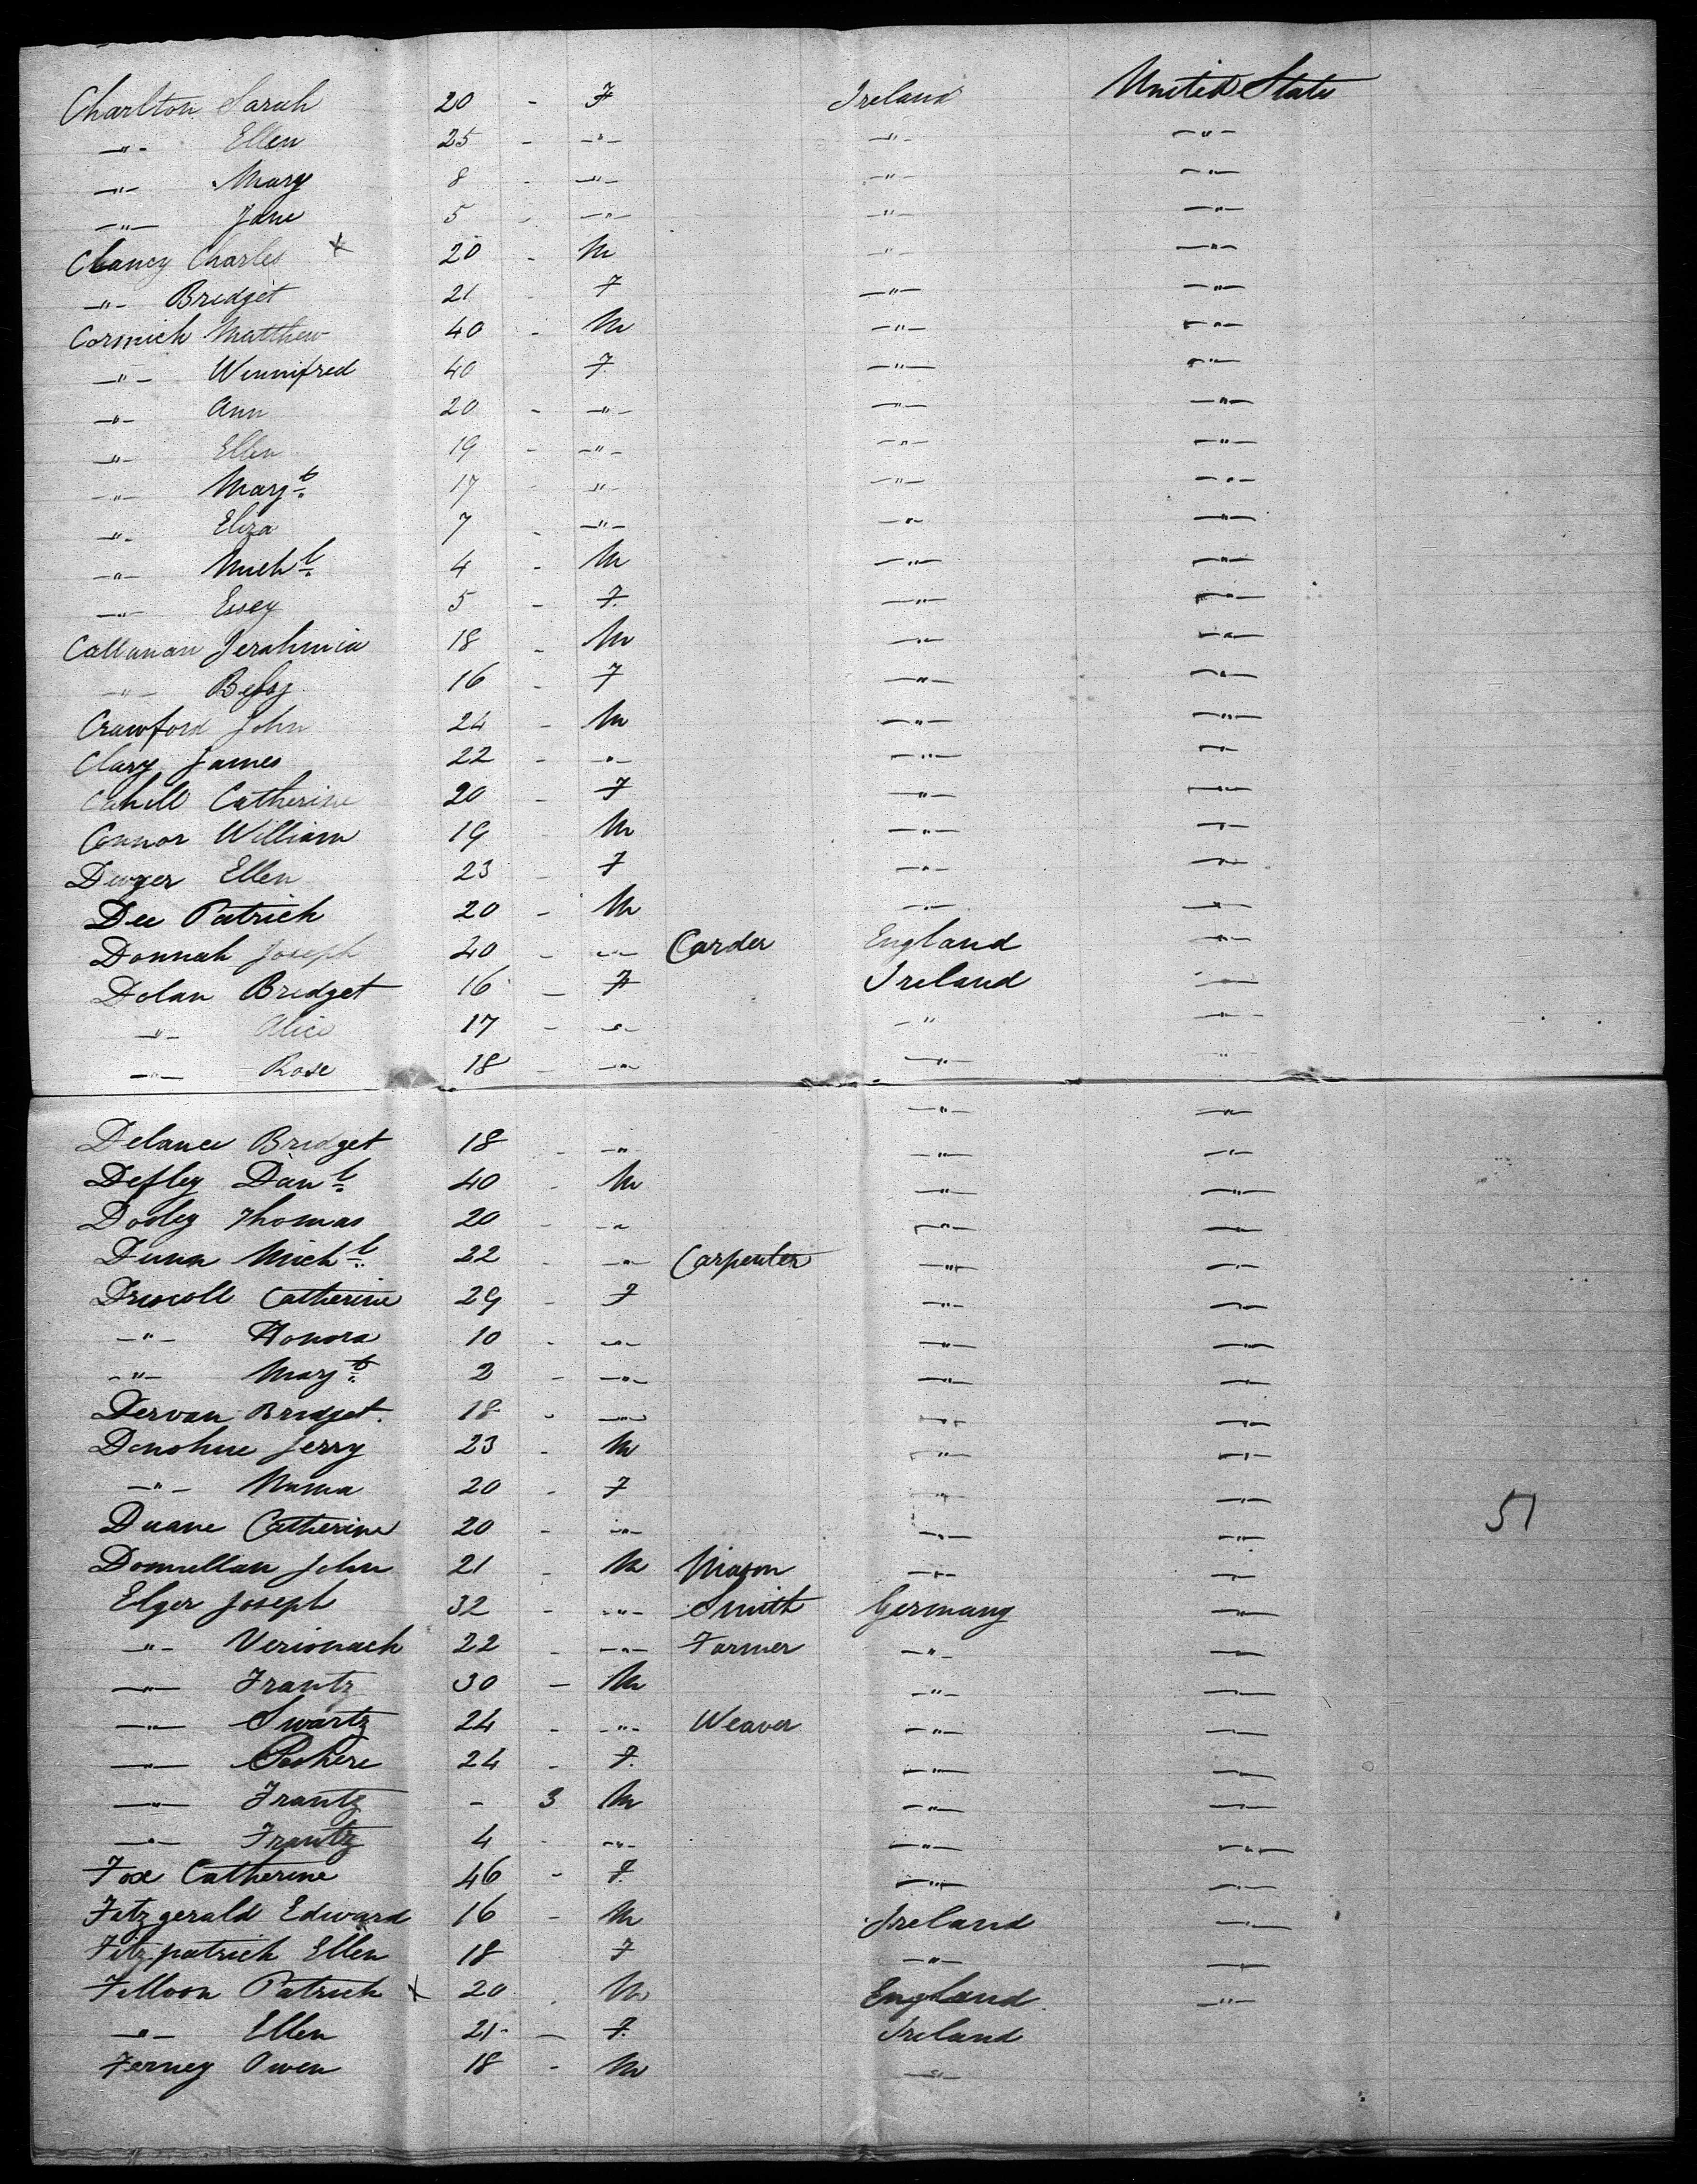 Charlton Sarah 20 - F Ireland United States
-"- Ellen 25 - -"- -"- -"-
-"- Mary 8 - -"- -"- -"-
-"- Jane 5 - -"- -"- -"-
Clancy Charles x 20 - M -"- -"-
-"- Bridget 21 - F -"- -"-
Cormick Matthew 40 - M -"- -"-
-"- Winnifred 40 F -"- -"-
-"- Ann 20 - -"- -"- -"-
-"- Ellen 19 - -"- -"- -"-
-"- Margt 17 - -"- -"- -"-
-"- Eliza 7 - -"- -"- -"-
-"- Michl 4 - M -"- -"-
-"- Essey 5 - F -"- -"-
Callanan Jerahmia 18 - M -"- -"-
-"- Betsy 16 - F -"- -"-
Crawford John 24 - M -"- -"-
Clary James 22 - -"- -"- -"-
Cahill Catherine 20 - F -"- -"-
Connor William 19 - M -"- -"-
Dwyer Ellen 23 - F -"- -"-
Dee Patrick 20 - M -"- -"-
Donnah Joseph 40 - -"- Carder England -"-
Dolan Bridget 16 - F Ireland -"-
-"- Alice 17 - -"- -"- -"-
-"- Rose 18 - -"- -"- -"-
Delance Bridget 18 - -"- -"- -"-
Defley Danl 40 - M -"- -"-
Dooley Thomas 20 - -"- -"- -"-
Dunn Michl 22 - -"- Carpenter -"- -"-
Driscoll Catherine 29 - F -"- -"-
-"- Honora 10 - -"- -"- -"-
-"- Margt 2 - -"- -"- -"-
Dervan Bridget 18 - -"- -"- -"-
Donohue Jerry 23 - M -"- -"-
-"- 20 - F -"- -"-
Duane Catherine 20 - -"- -"- -"- 51
Donnellan John 21 - M Mason -"- -"-
Elger Joseph 32 - -"- Smith Germany -"-
-"- 22 - -"- Farmer -"- -"-
-"- Frantz 30 - M -"- -"-
-"- Swartz 24 - -"- Weaver -"- -"-
-"- 24 - F -"- -"-
-"- Frantz - 3 M -"- -"-
-"- Frantz 4 - -"- -"- -"-
Fox Catherine 46 - F -"- -"-
Fitzgerald Edward 16 - M Ireland -"-
Fitzpatrick Ellen 18 F -"- -"-
Filloon Patrick x 20 - M England -"-
-"- Ellen 21 - F Ireland
Ferney Owen 18 - M -"-